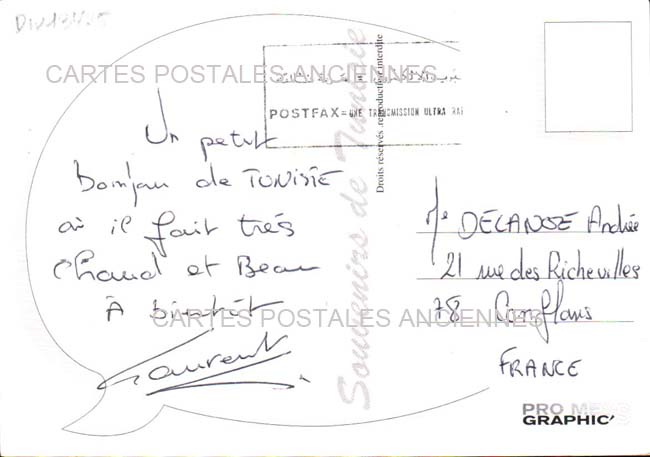 CARTES POSTALES ANCIENNES
POSTFAX = UNE TRANSMISSION ULTRA RAP
Un petit
Bonjour de TUNISIE
où il fait très
Chaud et Beau
À bientôt
Laurent
Souvenirs de Tunisie
Droits réservés, reproduction interdite
Me DECANOZE Andrée
21 rue des Richevilles
78 Conflans
FRANCE
CARTES POSTALES ANCIENNES
PRO
GRAPHIC'